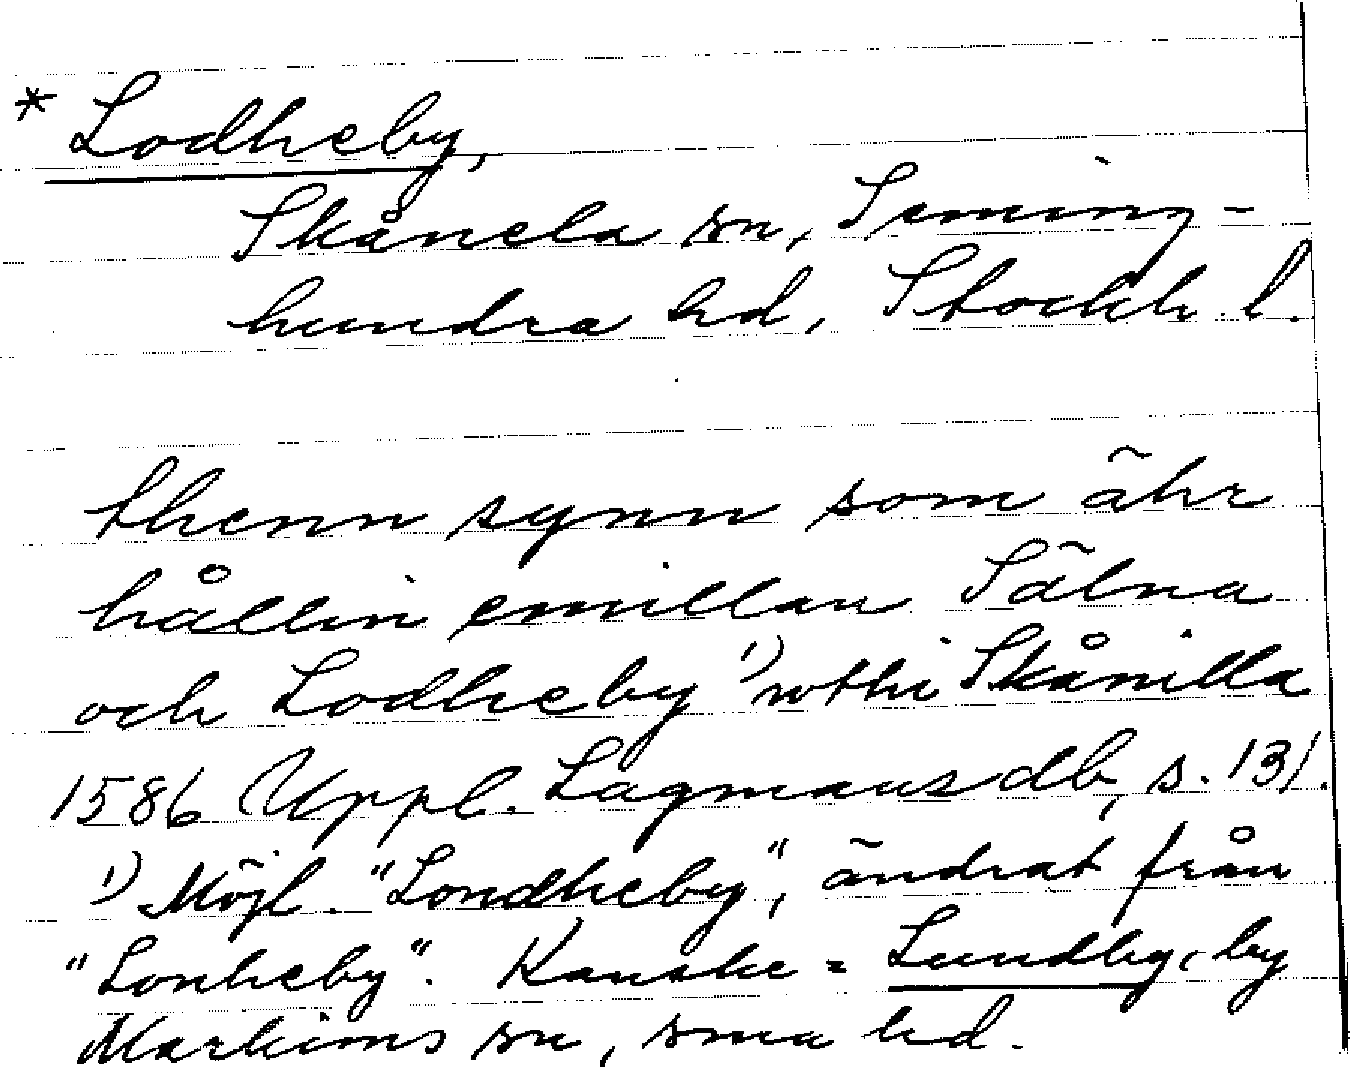 * Lodheby,
Skånela sn, Seming-
hundra hd, Stockh. l.
thenn synn som ähr
hållin emillan Sälna
och Lodheby ¹⁾ wthi Skånilla
1586 Uppl. Lagmansdb, s. 131.
¹⁾ Möjl. "Londheby", ändrat från
"Lonheby". Kanske = Lundby, by
Markims sn, sma hd.